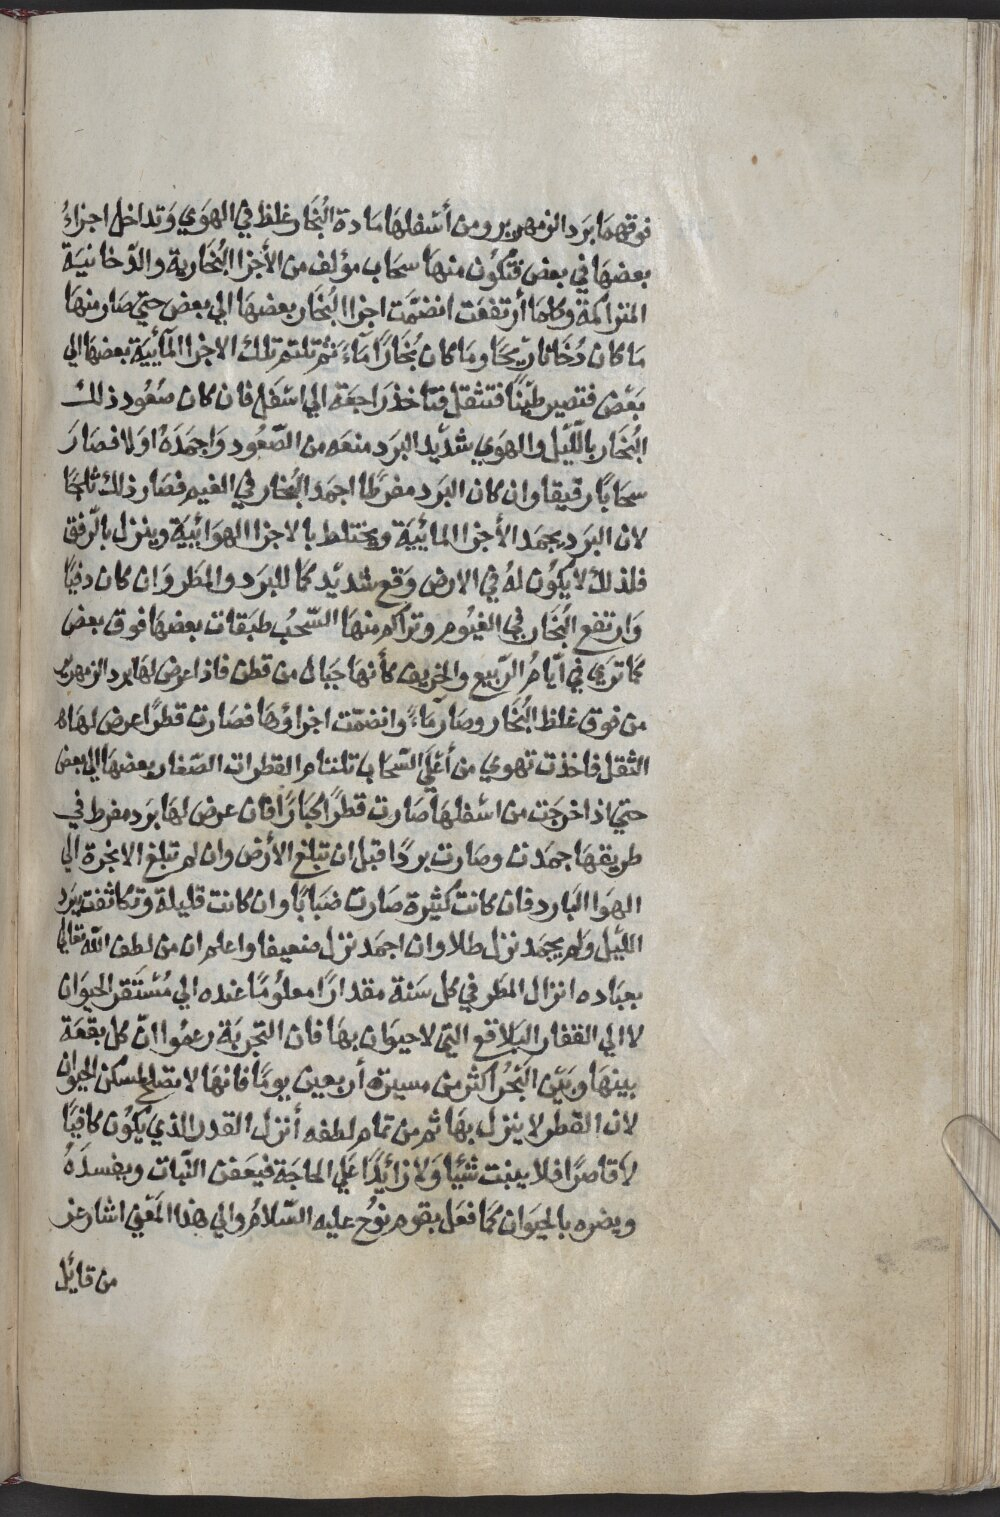 فوقهما برد الزمهرير ومن أسفلها مادة البُخار غلظ في الهوي وتداخل اجزاءُ
بعضها في بعض فتكون منها سحاب مؤلف من الأجزا البُخارية والدّخانية
المتراكمة وكلما أرتفعَت انضمّت اجزا البُخار بعضها الي بعض حتي صار منها
ما كان دُخانا ريحا وما كان بُخارًا مآءً ثم تلتم تلك الاجزا المآئية بعضها الي
بعض فتصير طينًا فتثقل فتاخذ راجعة الي اسفل فان كان صُعُود ذلك
البُخار بالليل والهوي شديد البرد منعه من الصّعُود واجمدَهُ اولا فصارَ
سحابًا رقيقا وان كان البرد مفرطًا اجمد البُخار في الغيم فصار ذلك ثلجًا
لان البرد يجمد الأجزا المائيية ويختلط بالاجزا الهوائيية وينزل بالرفق
فلذلك لا يكون لهُ في الارض وقع شديد كما للبرد والمطر وان كان دفيًا
وارتفع البُخار في الغيُوم وتراكم منها السّحُب طبقات بعضها فوق بعض
كما تري في أيّام الرّبيع والخريف كأنها جبال من قطن فاذا عرض لها برد الزمهرير
من فوق غلظ البُخار وصار مآءً وانضمّت اجزاؤها فصارت قطرًا عرض لها
الثقل فاخذت تهوي من أعلَي السّحاب تلتئام القطرات الصّغار بعضها الي بعض
حتي اذا خرجَت من اسفلها صارت قطرًا كبارًا فان عرض لها برد مفرط في
طريقها جمدت وصارت بردًا قبل ان تبلغ الأرض وان لم تبلغ الابخرة الي
الهوا البارد فان كانت كثيرة صارت ضبابًا وان كانت قليلة وتكاثفت ببرد
الليل ولم يجمد نزل طلا وان اجمد نزل صنعيفا واعلم ان من لطف الله تعالي
بعباده انزال المطر في كل سَنة مقدارًا معلُومًا عنده الي مُستقر الحيوان
لا الي القفار البلاقع التي لا حيوان بها فان التجربَة زعمُوا انّ كل بقعَة
بينها وبَين البَحرُ اكثر من مسيرة أربعين يومًا فانها لا تصلح لمسكن الحيوان
لان القطر لا ينزل بها ثم من تمام لطفه أنزل القدر الذي يكُون كافيًا
لا قاصرًا فلا ينبت شيئًا ولا زائيدًا علي الحاجة فيعَفن النّبات ويفسدَهُ
ويضره بالحيوان كما فعَل بقوم نوُح عليه السّلامُ والي هذا المعَني اشار عز
من قايل